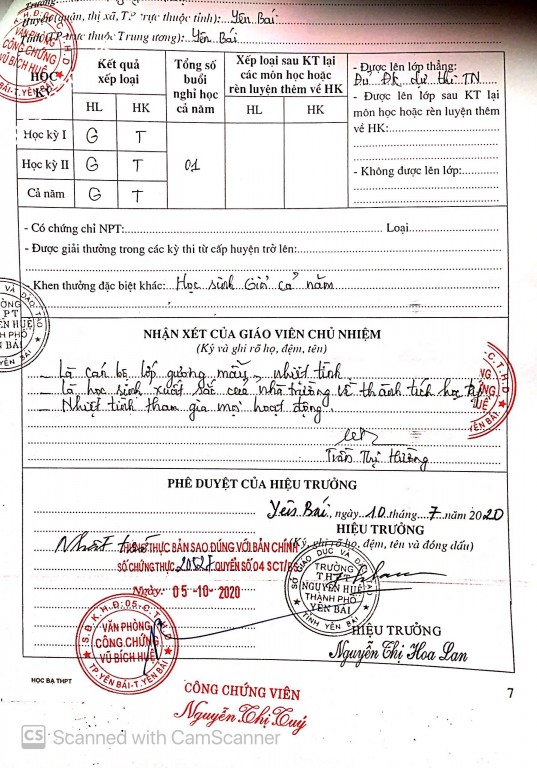 Huyện (quận, thị xã, T.P trực thuộc tỉnh): Yên Bái
Tỉnh (T.P trực thuộc Trung ương): Yên Bái
HỌC KỲ
Kết quả xếp loại
HL
HK
Tổng số buổi nghỉ học cả năm
Xếp loại sau KT lại các môn học hoặc rèn luyện thêm về HK
HL
HK
Học kỳ I G T
Học kỳ II G T 01
Cả năm G T
- Được lên lớp thẳng:
Đủ ĐK dự thi TN
- Được lên lớp sau KT lại
môn học hoặc rèn luyện thêm
về HK:
- Không được lên lớp:
- Có chứng chỉ NPT: Loại
- Được giải thưởng trong các kỳ thi từ cấp huyện trở lên:
- Khen thưởng đặc biệt khác: Học sinh Giỏi cả năm
NHẬN XÉT CỦA GIÁO VIÊN CHỦ NHIỆM
(Ký và ghi rõ họ, đệm, tên)
- Là cán bộ lớp gương mẫu, nhiệt tình.
- Là học sinh xuất sắc của nhà trường về thành tích học tập
- Nhiệt tình tham gia mọi hoạt động.
Trần Thị Hường
PHÊ DUYỆT CỦA HIỆU TRƯỞNG
Yên Bái, ngày 10 tháng 7 năm 2020
HIỆU TRƯỞNG
(Ký, ghi rõ họ, đệm, tên và đóng dấu)
Nhất trí
CHỨNG THỰC BẢN SAO ĐÚNG VỚI BẢN CHÍNH
SỐ CHỨNG THỰC QUYỂN SỐ 04 SCT/BS
Ngày: 05 -10- 2020
SỞ GIÁO DỤC VÀ ĐÀO TẠO
TRƯỜNG
THPT
NGUYỄN HUỆ
THÀNH PHỐ
YÊN BÁI
TỈNH YÊN BÁI
S.Đ.K.H.Đ:05-C.T.H.D
VĂN PHÒNG
CÔNG CHỨNG
VŨ BÍCH HUỆ
TP.YÊN BÁI-T.YÊN BÁI
HIỆU TRƯỞNG
Nguyễn Thị Hoa Lan
HỌC BẠ THPT
7
CÔNG CHỨNG VIÊN
Nguyễn Thị Tuý
CS Scanned with CamScanner